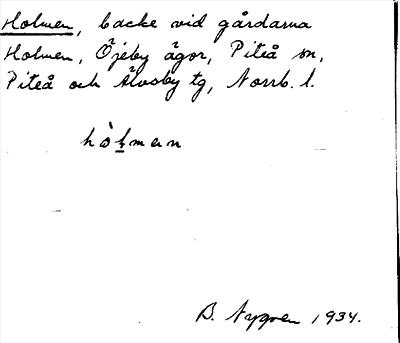 Holmen, backe vid gårdarna
Holmen, Öjeby ägor, Piteå sn,
Piteå och Älvsby tg, Norrb. l.
hòl̲man
B. Nygren 1934.